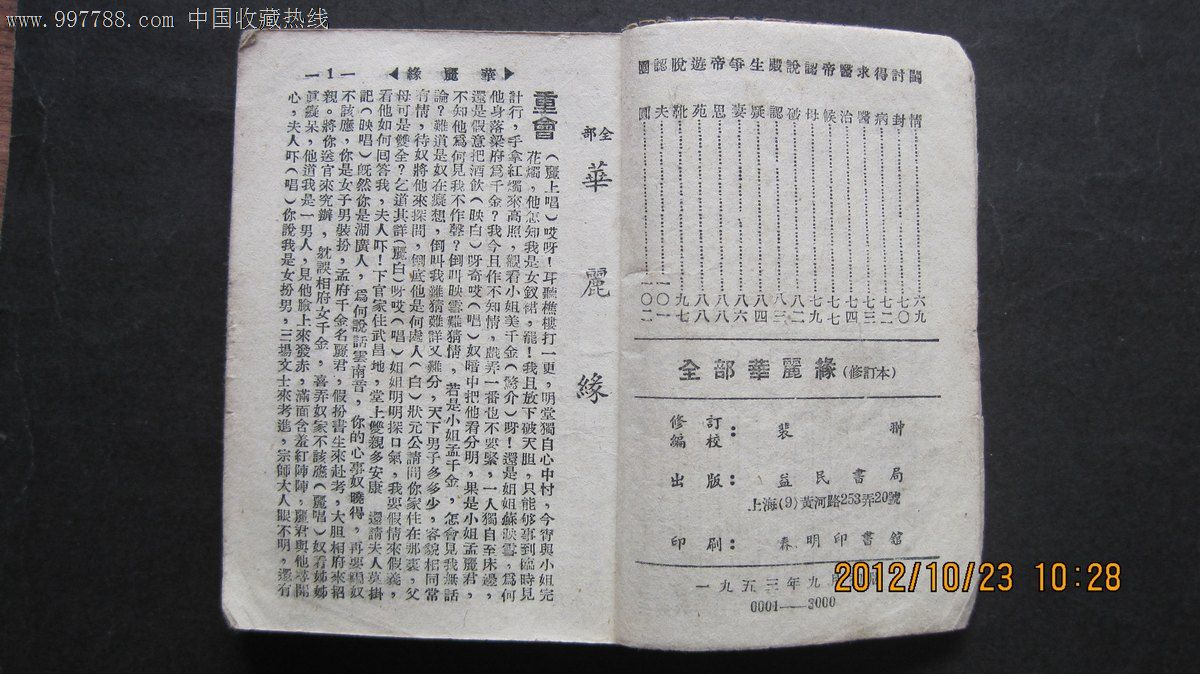 www.997788.com 中国收藏热线
鬧情…………六九
討封…………七〇
得病…………七二
求醫…………七三
醫治…………七四
帝候…………七七
認母…………七九
說破…………八二
戲認…………八三
生疑…………八四
爭妻…………八六
帝思…………八八
遊苑…………八八
脫靴…………九七
認夫…………一〇一
團圓…………一〇二
全部華麗緣(修訂本)
修訂編校：裴翀
出版：益民書局
上海(9)黃河路253弄20號
印刷：春明印書舘
一九五三年九月
0001——3000
2012/10/23 10:28
華麗緣
—1—
全部華麗緣
重會
(麗上唱)哎呀！耳聽樵樓打一更，明堂獨自心中忖，今宵與小姐完
花燭，他怎知我是女釵裙，罷！我且放下破天胆，只能够事到臨時見
計行，手拿紅燭來高照，觀看小姐美千金(驚介)呀！還是姐姐蘇映雪，爲何
他身落梁府爲千金？我今且作不知情，戲弄一番也不要緊，一人獨自至床邊，
還是假意把酒飲(映白)呀奇(唱)奴暗中把他看分明，果是小姐孟麗君，
不知他爲何見我不作聲？倒叫映雪難猜情，若是小姐孟千金，怎會見我無話
論？難道是奴在癡想，倒叫我難猜難詳又難分，天下男子多多少，容貌相同常
有情，待奴將他來探問，倒底他是何處人(白)狀元公請問你家住在那裏，父
母可是雙全？乞道其詳(麗白)呀哎(唱)姐姐明明探口氣，我要假情來假義，
看他如何囘答我，夫人吓！下官家住武昌地，堂上雙親多安康，還請夫人莫掛
記(映唱)既然你是湖廣人，爲何說話雲南音，你的心事奴曉得，再要瞞奴
不該應，你是女子男裝扮，孟府千金名麗君，假扮書生來赴考，大胆相府來招
親。將你送官來究辦，躭誤相府女千金，喜弄奴家不該應(麗唱)奴看姊姊
眞癡呆，他道我是一男人，見他臉上來發赤，滿面含羞紅陣陣，麗君與他尋開
心，夫人吓(唱)你說我是女扮男，三場文士來考進，宗師大人眼不明，還有